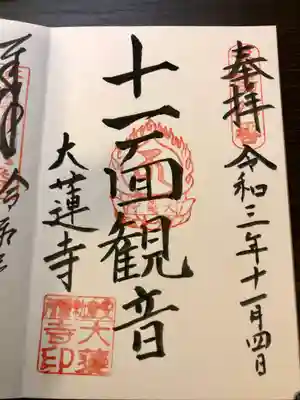 奉拝
令和三年十一月四日
十一面観音
大蓮寺